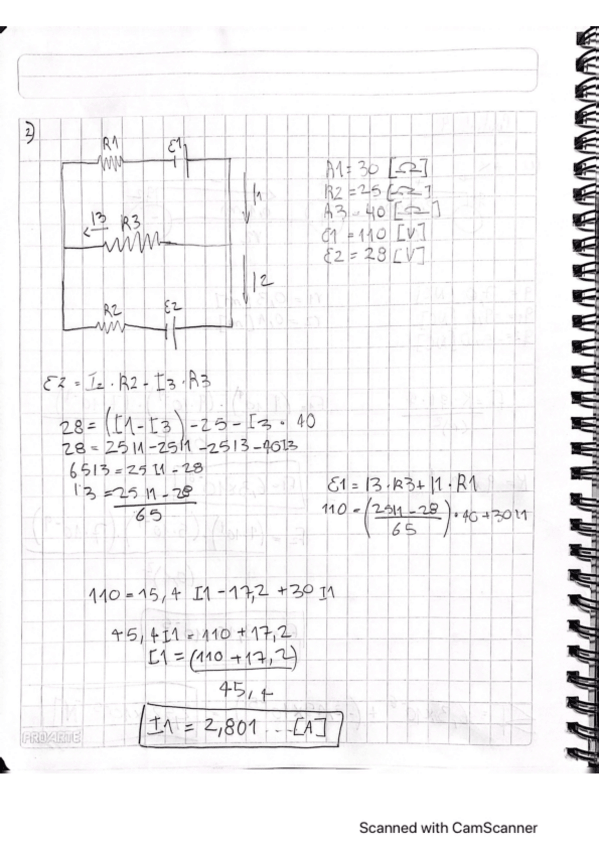 2)
R1 ε1
I1
I3 R3
I2
R2 ε2
R1 = 30 [Ω]
R2 = 25 [Ω]
R3 = 40 [Ω]
ε1 = 110 [V]
ε2 = 28 [V]
ε2 = I2 · R2 - I3 · R3
28 = (I1 - I3) - 25 - I3 · 40
28 = 25I1 - 25I1 - 25I3 - 40I3
65I3 = 25I1 - 28
I3 = 25I1 - 28
65
ε1 = I3 · R3 + I1 · R1
110 = (25I1 - 28 / 65) · 40 + 30I1
110 = 15,4 I1 - 17,2 + 30 I1
45,4I1 = 110 + 17,2
I1 = (110 + 17,2)
45,4
I1 = 2,801 ... [A]
PROARTE
Scanned with CamScanner